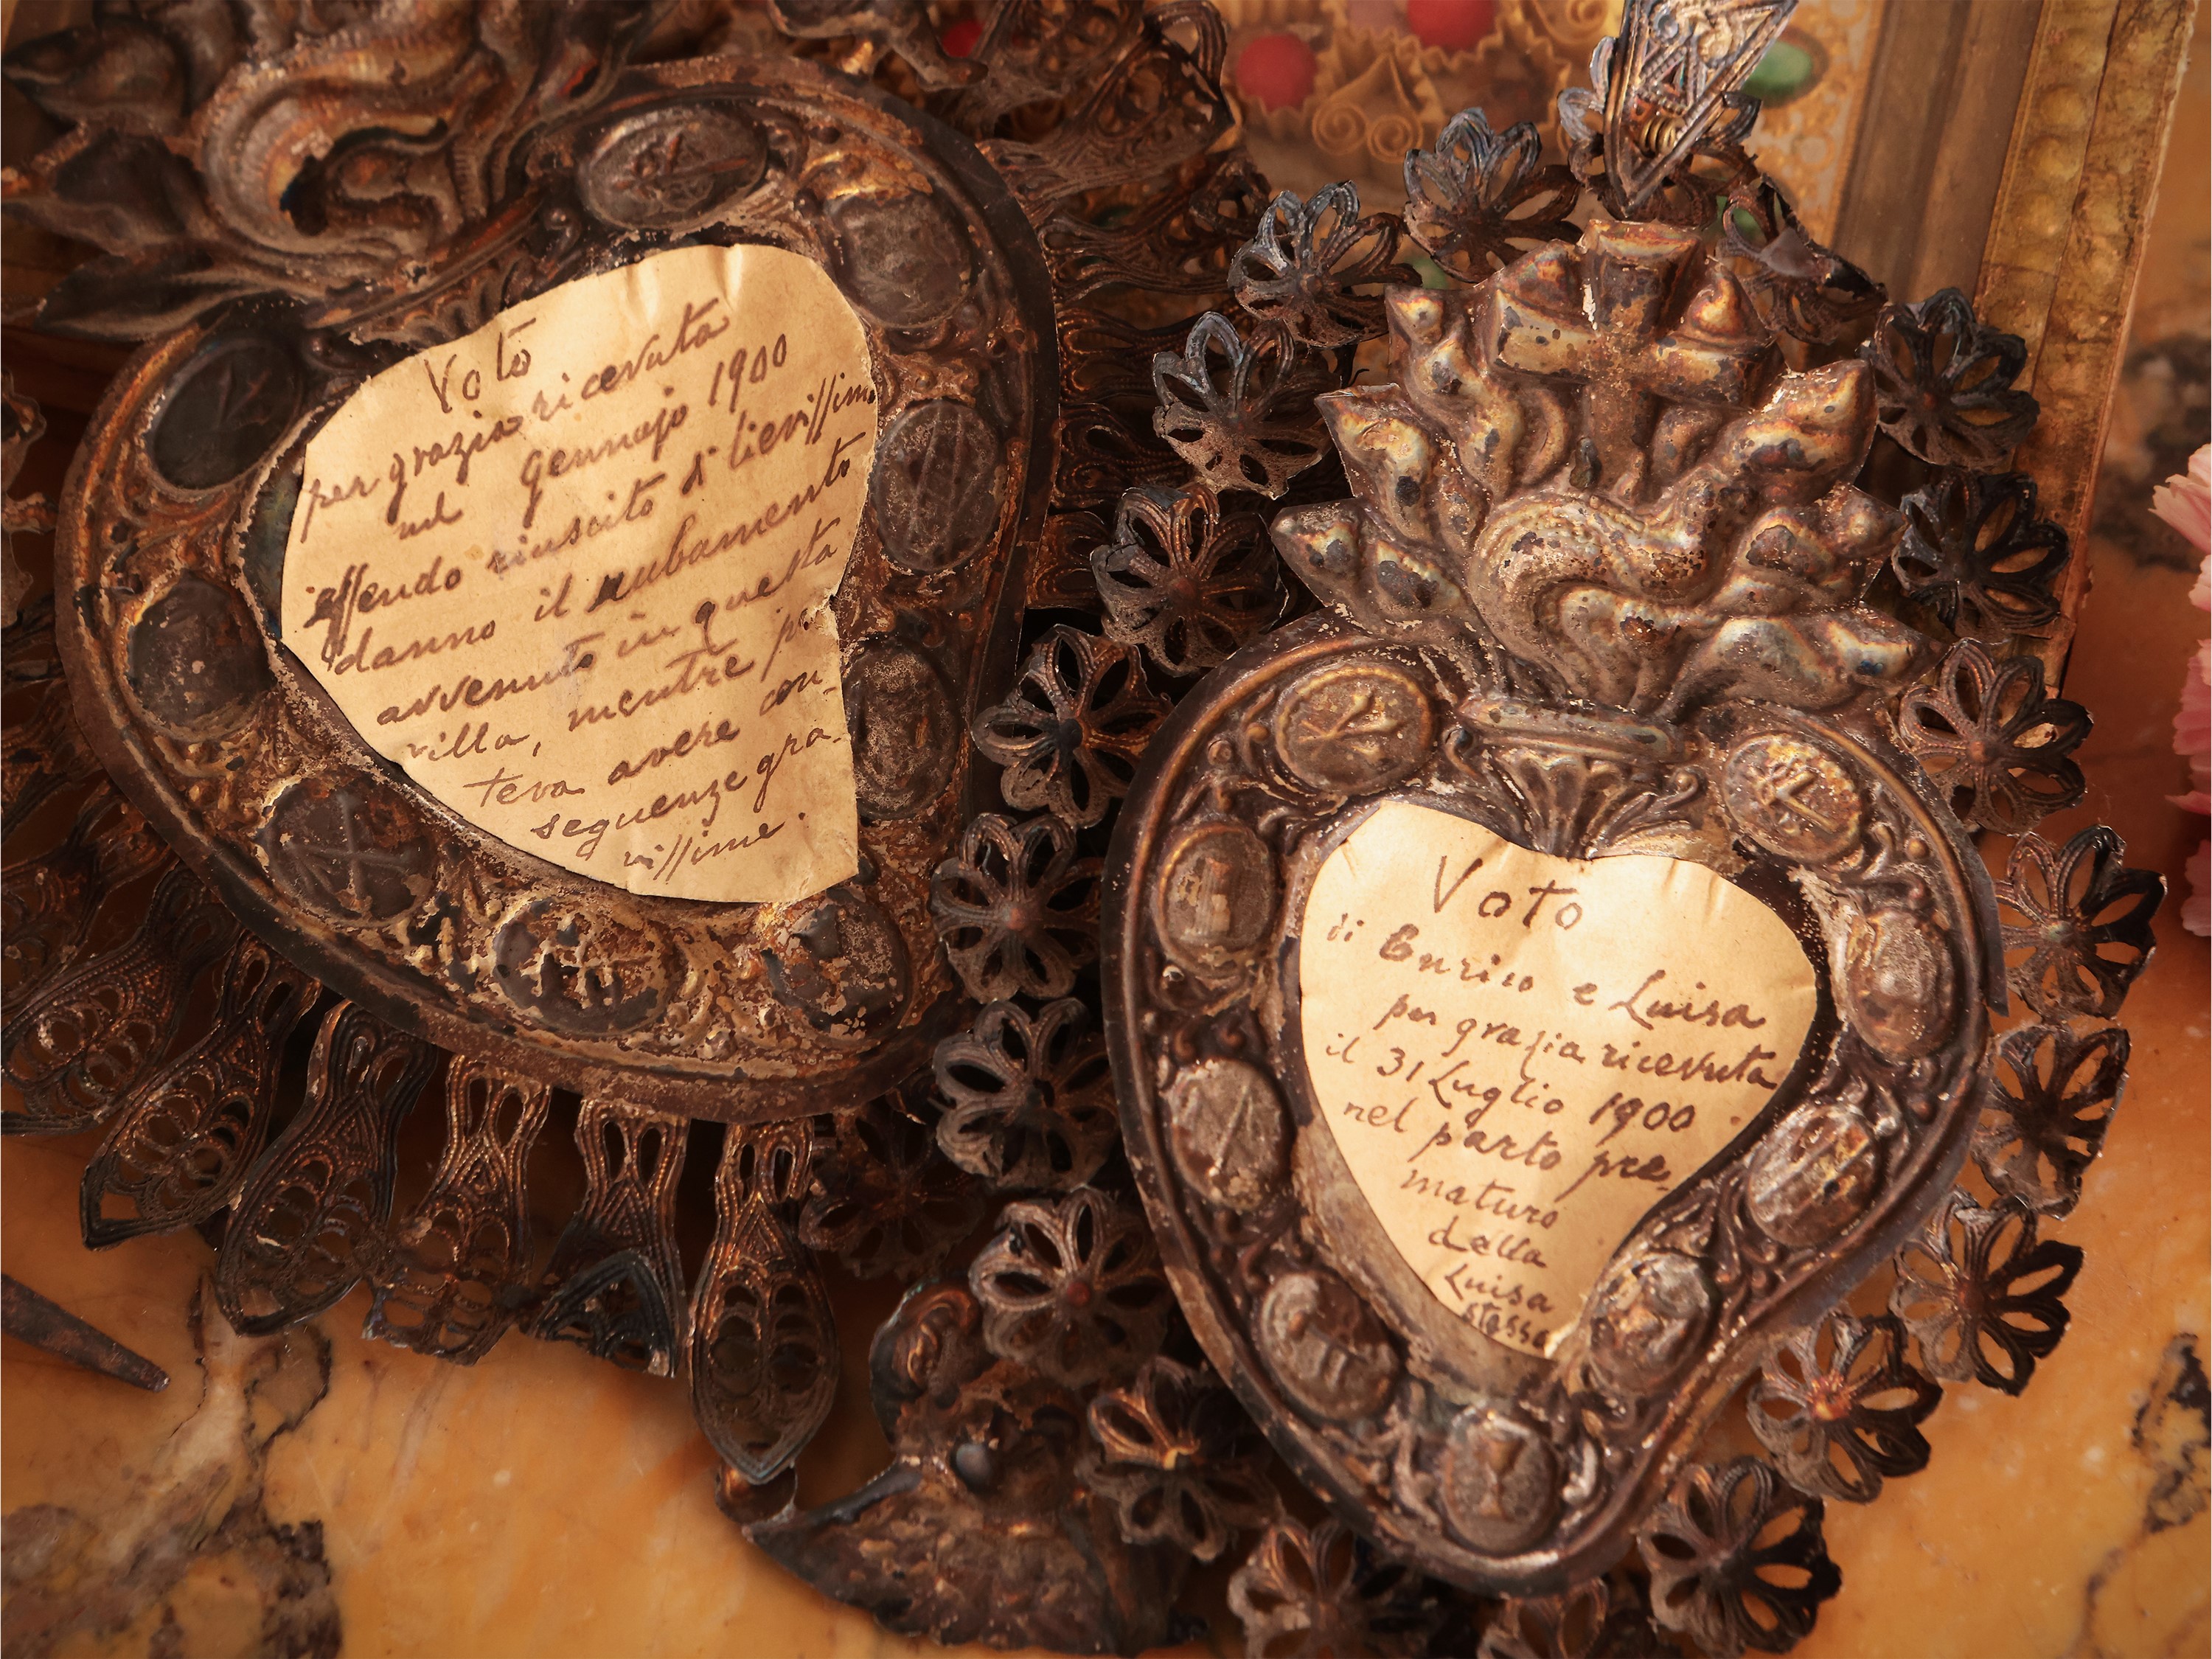 Voto
per grazia ricevuta
nel gennajo 1900
essendo riuscito di lievissimo
danno il rubamento
avvenuto in questa
villa, mentre po
teva avere con-
seguenze gra-
vissime.
Voto
di Enrico e Luisa
per grazia ricevuta
il 31 Luglio 1900
nel parto pre-
maturo
della
Luisa
stessa